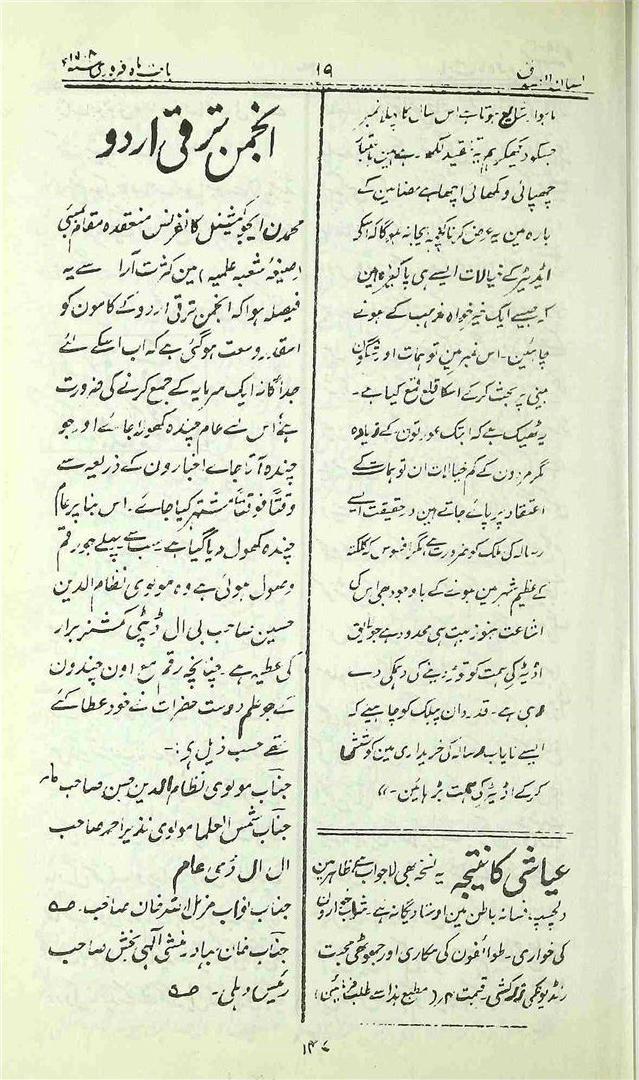 بابت ماہ فروری
۱۹
ماہوار شایع ہوتا ہے اس سال کا پہلا نمبر
جسکو دیکھکر ہم یہ تنقید لکھ رہے ہین
چھپائی و لکھائی اچھا ہے مضامین کے
بارہ مین یہ عرض کرنا کچھ بیجا نہوگا کہ اسکے
اڈیٹر کے خیالات ایسے ہی پاکیزہ ہین
کہ جیسے ایک خیر خواہ مذہب کے ہونے
چاہئین۔ اس نمبر مین توہمات اور شگون
بینی پر بحث کرکے اسکا قلع قمع کیا ہے۔
یہ ٹھیک ہے کہ ابتک عورتون کے زیادہ
مگر مردون کے کم خیالات ان توہمات کے
اعتقاد پر پائے جاتے ہین در حقیقت ایسے
رسالہ کی ملک کو ضرورت ہے مگر افسوس کہ کلکتہ
کے عظیم شہر مین ہونے کے باوجود بھی اس کی
اشاعت ہنوز بہت ہی محدود ہے جو لایق
اڈیٹر کی ہمت کو توڑ دینے کی دہمکی دے
رہی ہے۔ قدردان پبلک کو چاہیے کہ
ایسے نایاب رسالہ کی خریداری مین کوشش
کرکے اڈیٹر کی ہمت بڑہائین۔"
عیاشی کا نتیجہ یہ نسخہ بھی لاجواب ہے ظاہر مین
دلچسپ فسانہ باطن مین اوستاد یگانہ ہے۔ شراب خوارون
کی خواری۔ طوائفون کی مکاری اور جھوٹھی محبت
رنڈیونکی قیمت ۴ر (مطبع ہذا سے طلب فرمائین)
انجمن ترقی اردو
محمڈن ایجوکیشنل کانفرنس منعقدہ مقام بمبئی
(صیغہ شعبہ علمیہ) مین کثرت آرا سے یہ
فیصلہ ہوا کہ انجمن ترقی اردو کے کامون کو
اسقدر وسعت ہوگئی ہے کہ اب اسکے لئے
جداگانہ ایک سرمایہ کے جمع کرنے کی ضرورت
ہے اس لئے عام چندہ کھولا جائے اور جو
چندہ آتا جائے اخبارون کے ذریعہ سے
وقتاً فوقتاً مشتہر کیا جائے۔ اس بنا پر عام
چندہ کھول دیا گیا ہے سب سے پہلے جو رقم
وصول ہوئی ہے وہ مولوی نظام الدین
حسین صاحب بی ال ڈپٹی کمشنر برار
کی عطیہ ہے۔ چنانچہ رقم مع اون چندون
کے جو علم دوست حضرات نے خود عطا کئے
تھے حسب ذیل ہے:۔
جناب مولوی نظام الدین حسن صاحب
جناب شمس العلما مولوی نذیر احمد صاحب
ال ال ڈی عام
جناب نواب مزمل اللہ خان صاحب۔
جناب خان بہادر منشی آلہی بخش صاحب
رئیس دہلی۔